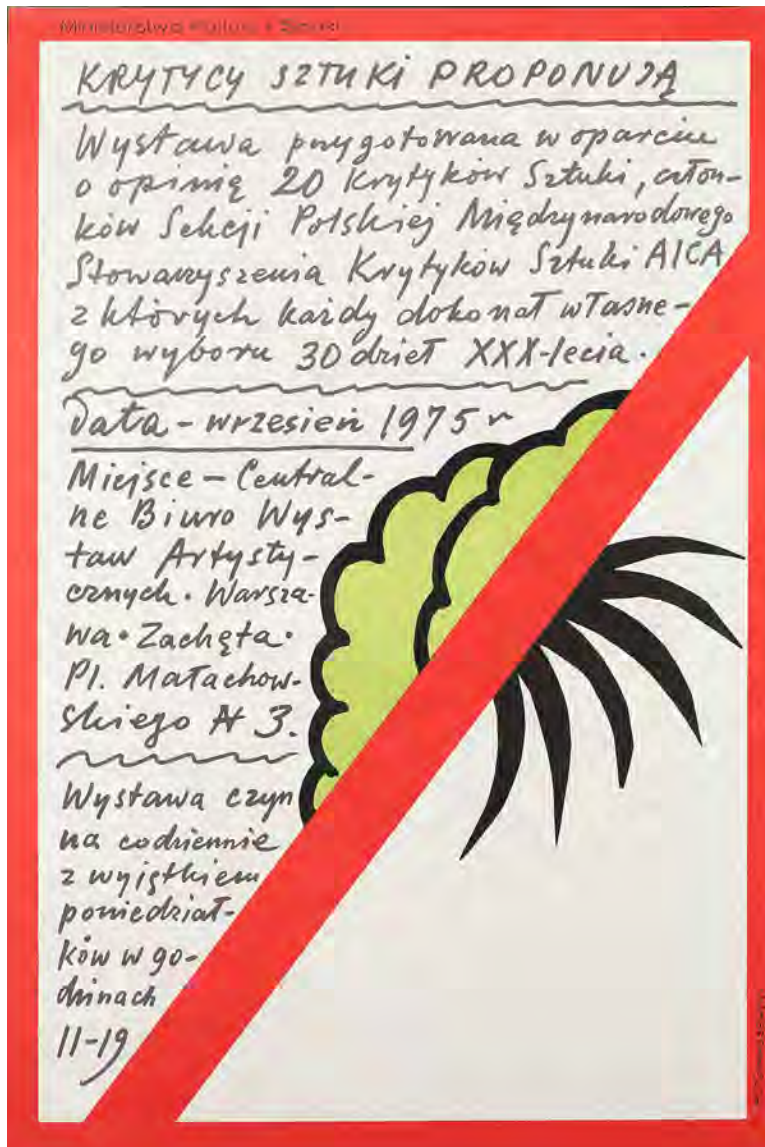 Ministerstwo Kultury i Sztuki
KRYTYCY SZTUKI PROPONUJĄ
Wystawa przygotowana w oparciu
o opinię 20 Krytyków Sztuki, człon-
ków Sekcji Polskiej Międzynarodowego
Stowarzyszenia Krytyków Sztuki AICA
z których każdy dokonał własne-
go wyboru 30 dzieł XXX-lecia.
Data – wrzesień 1975 r
Miejsce – Central-
ne Biuro Wys-
taw Artysty-
cznych · Warsza-
wa · Zachęta ·
Pl. Małachow-
skiego N 3.
Wystawa czyn
na codziennie
z wyjątkiem
poniedział-
ków w go-
dzinach
11-19